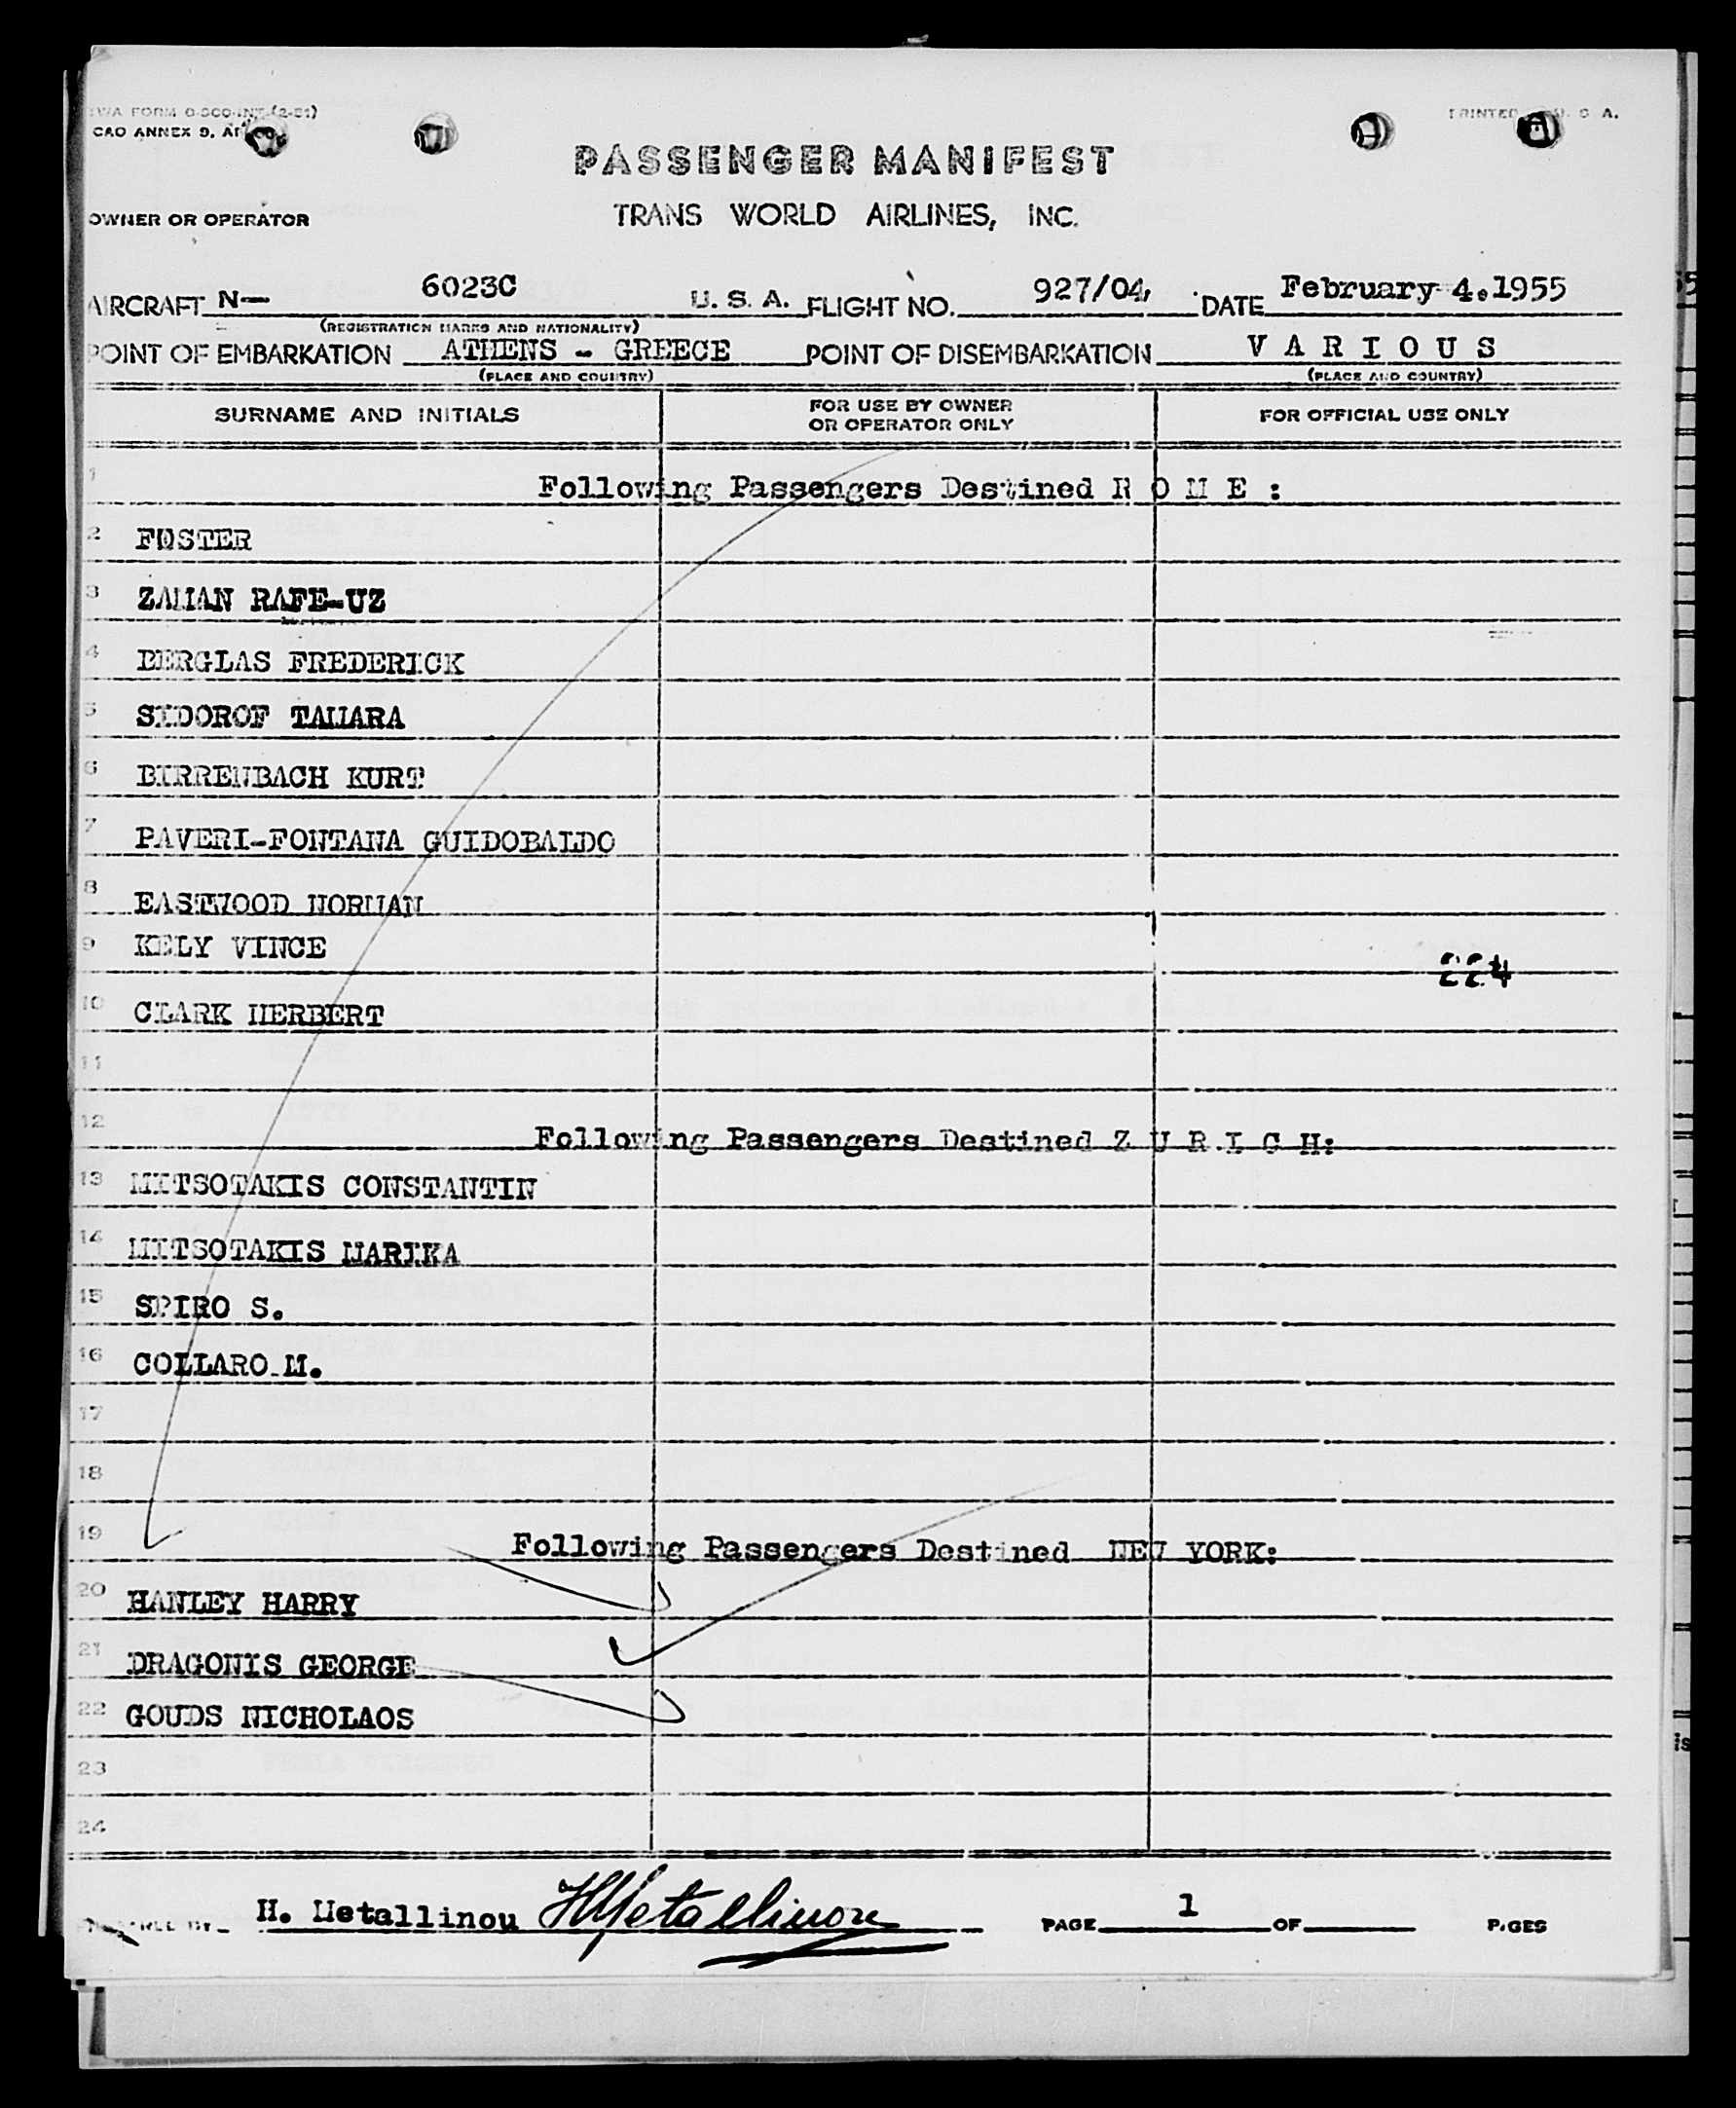 TWA FORM O-3CO-INT (2-51)
PRINTED U. S. A.
CAO ANNEX 9,
PASSENGER MANIFEST
OWNER OR OPERATOR TRANS WORLD AIRLINES, INC.
AIRCRAFT N— 6023C U. S. A. FLIGHT NO. 927/04, DATE February 4.1955
(REGISTRATION MARKS AND NATIONALITY)
POINT OF EMBARKATION ATHENS - GREECE POINT OF DISEMBARKATION V A R I O U S
(PLACE AND COUNTRY) (PLACE AND COUNTRY)
SURNAME AND INITIALS FOR USE BY OWNER OR OPERATOR ONLY FOR OFFICIAL USE ONLY
1 Following Passengers Destined R O M E :
2 FOSTER
3 ZAMAN RAFE-UZ
4 BERGLAS FREDERICK
5 SIDOROF TAMARA
6 BIRRENBACH KURT
7 PAVERI-FONTANA GUIDOBALDO
8 EASTWOOD NORMAN
9 KELY VINCE
224
10 CLARK HERBERT
11
12 Following Passengers Destined Z U R I C H:
13 MITSOTAKIS CONSTANTIN
14 MITSOTAKIS MARIKA
15 SPIRO S.
16 COLLARO M.
17
18
19 Following Passengers Destined NEW YORK:
20 HANLEY HARRY
21 DRAGONIS GEORGE
22 GOUDS NICHOLAOS
23
24
H. Metallinou HMetallinou PAGE 1 OF PAGES